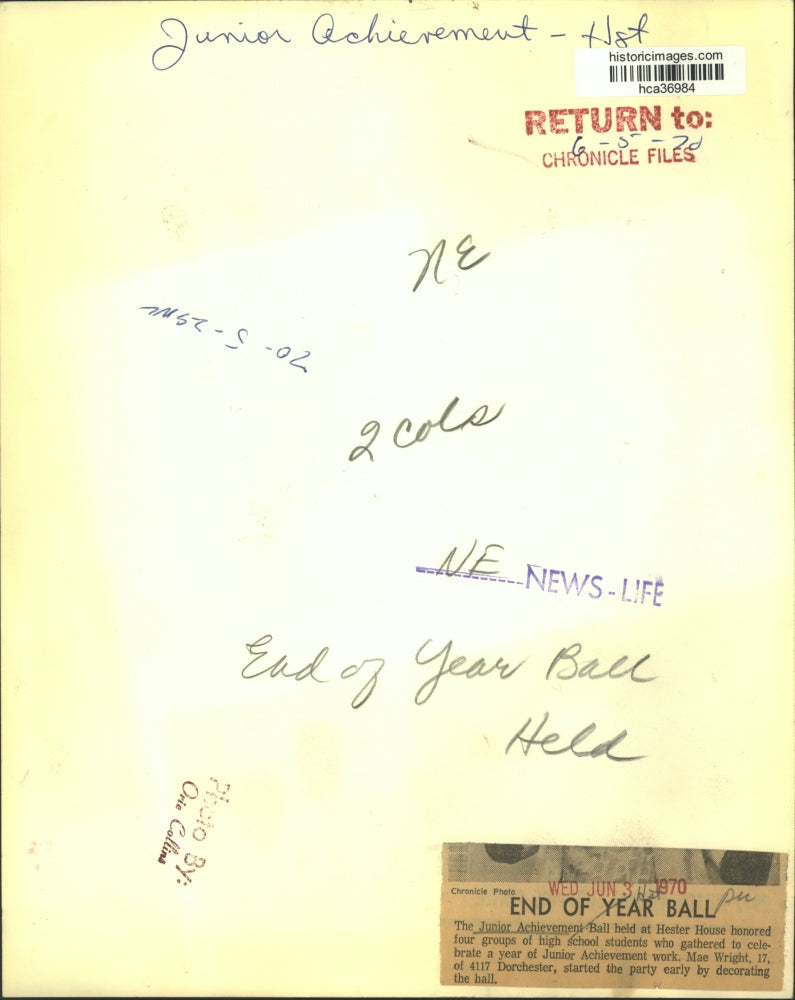 Junior Achievement - Hst
historicimages.com
hca36984
RETURN to:
6-5-70
CHRONICLE FILES
NE
70-5-29
2 cols
NE NEWS-LIFE
End of Year Ball
Held
Photo By:
Orie Collins
Chronicle Photo
WED JUN 3 1970
Hst
END OF YEAR BALL
The Junior Achievement Ball held at Hester House honored
four groups of high school students who gathered to cele-
brate a year of Junior Achievement work. Mae Wright, 17,
of 4117 Dorchester, started the party early by decorating
the hall.